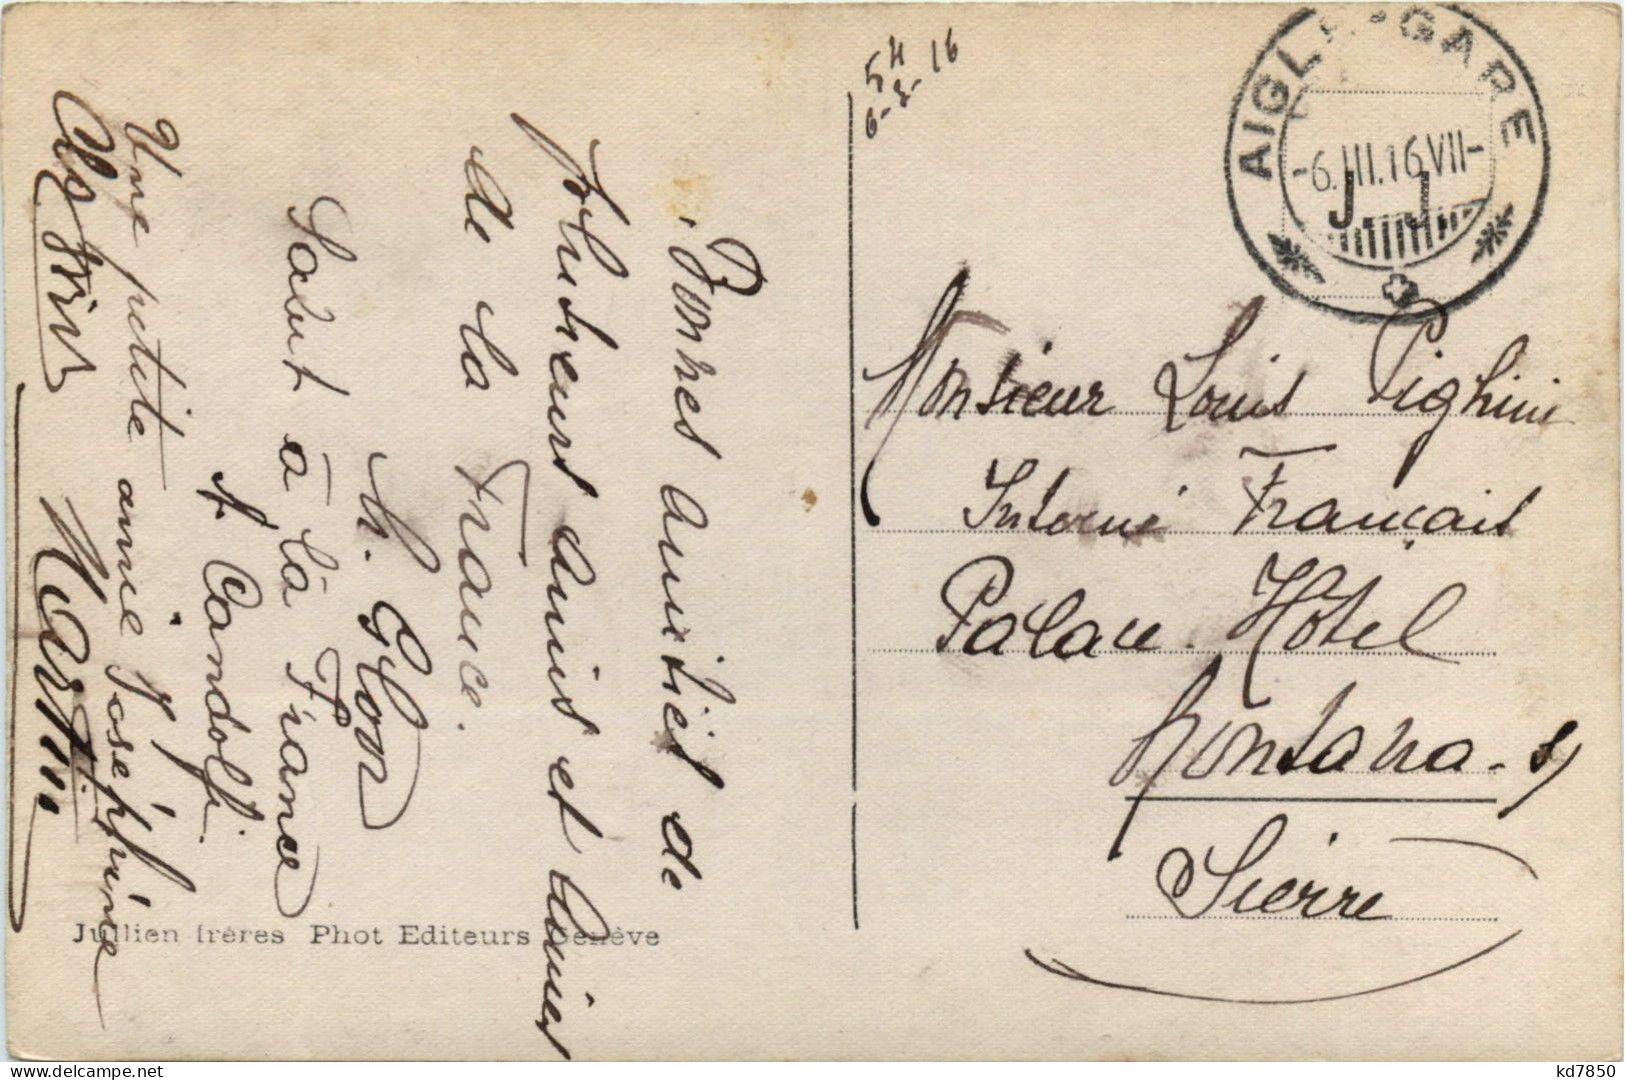 Bonnes amitiés de
plusieurs amis et amies
de la France.
h. Glon
Salut à la France
A Candolfi
Une petite amie Joséphine
Martin
54
6-3-16
AIGLE-GARE
-6.III.16 VII-
J. J.
Monsieur Louis Pighini
Interné Français
Palace Hôtel
Montana-s/
Sierre
Jullien frères Phot Editeurs Genève
kd7850